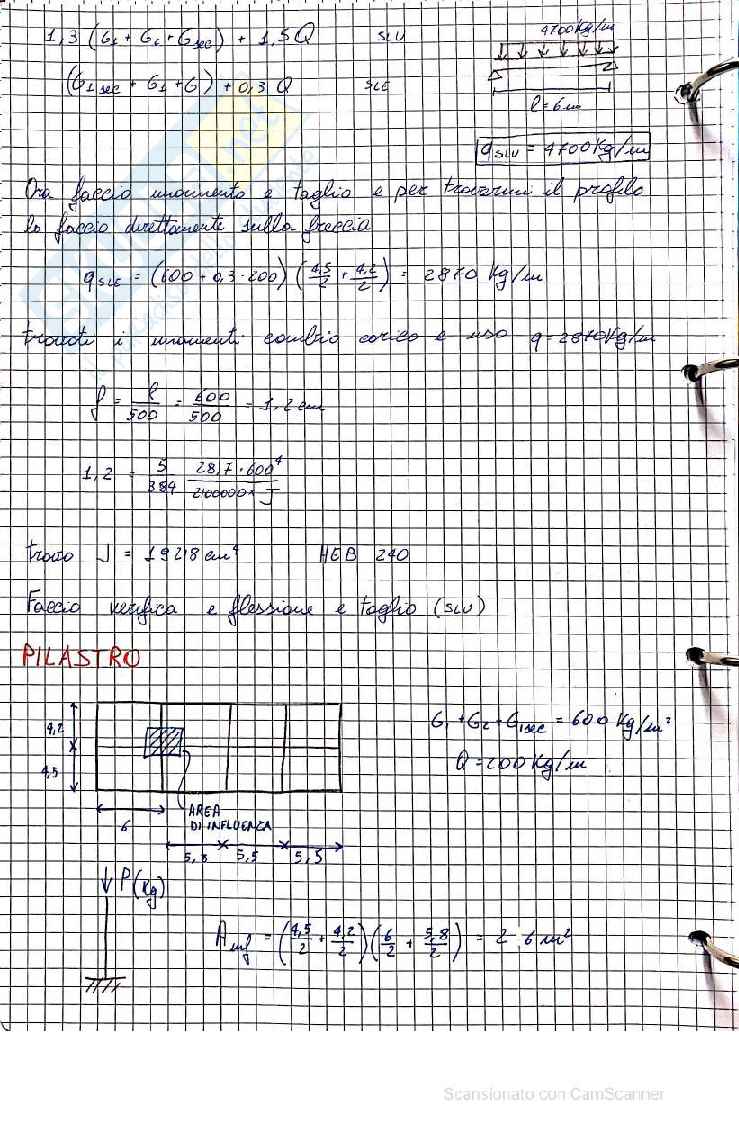 1,3 (G1 + G2 + G1sec) + 1,5Q SLU
4700Kg/m
(G1sec + G1 + G) + 0,3 Q SLE
l = 6m
qSLU = 4700Kg/m
Ora faccio momento e taglio e per trovarmi il profilo
lo faccio direttamente sulla freccia
qSLE = (600 + 0,3·200) (4,5/2 + 4,2/2) = 2870 Kg/m
trovati i momenti cambio carico e uso q=2870Kg/m
f = l/500 = 600/500 = 1,2 cm
1,2 = 5/384 28,7·600⁴/2100000×J
trovo J = 19218 cm⁴ HEB 240
Faccio verifica a flessione e taglio (SLU)
PILASTRO
G1 + G2 + G1sec = 600 Kg/m²
4,2
Q = 200 Kg/m
4,5
AREA
DI INFLUENZA
6
5,8 5,5 5,5
P(Kg)
Ainf = (4,5/2 + 4,2/2)(6/2 + 5,8/2) = 2 ,6 m²
Scansionato con CamScanner